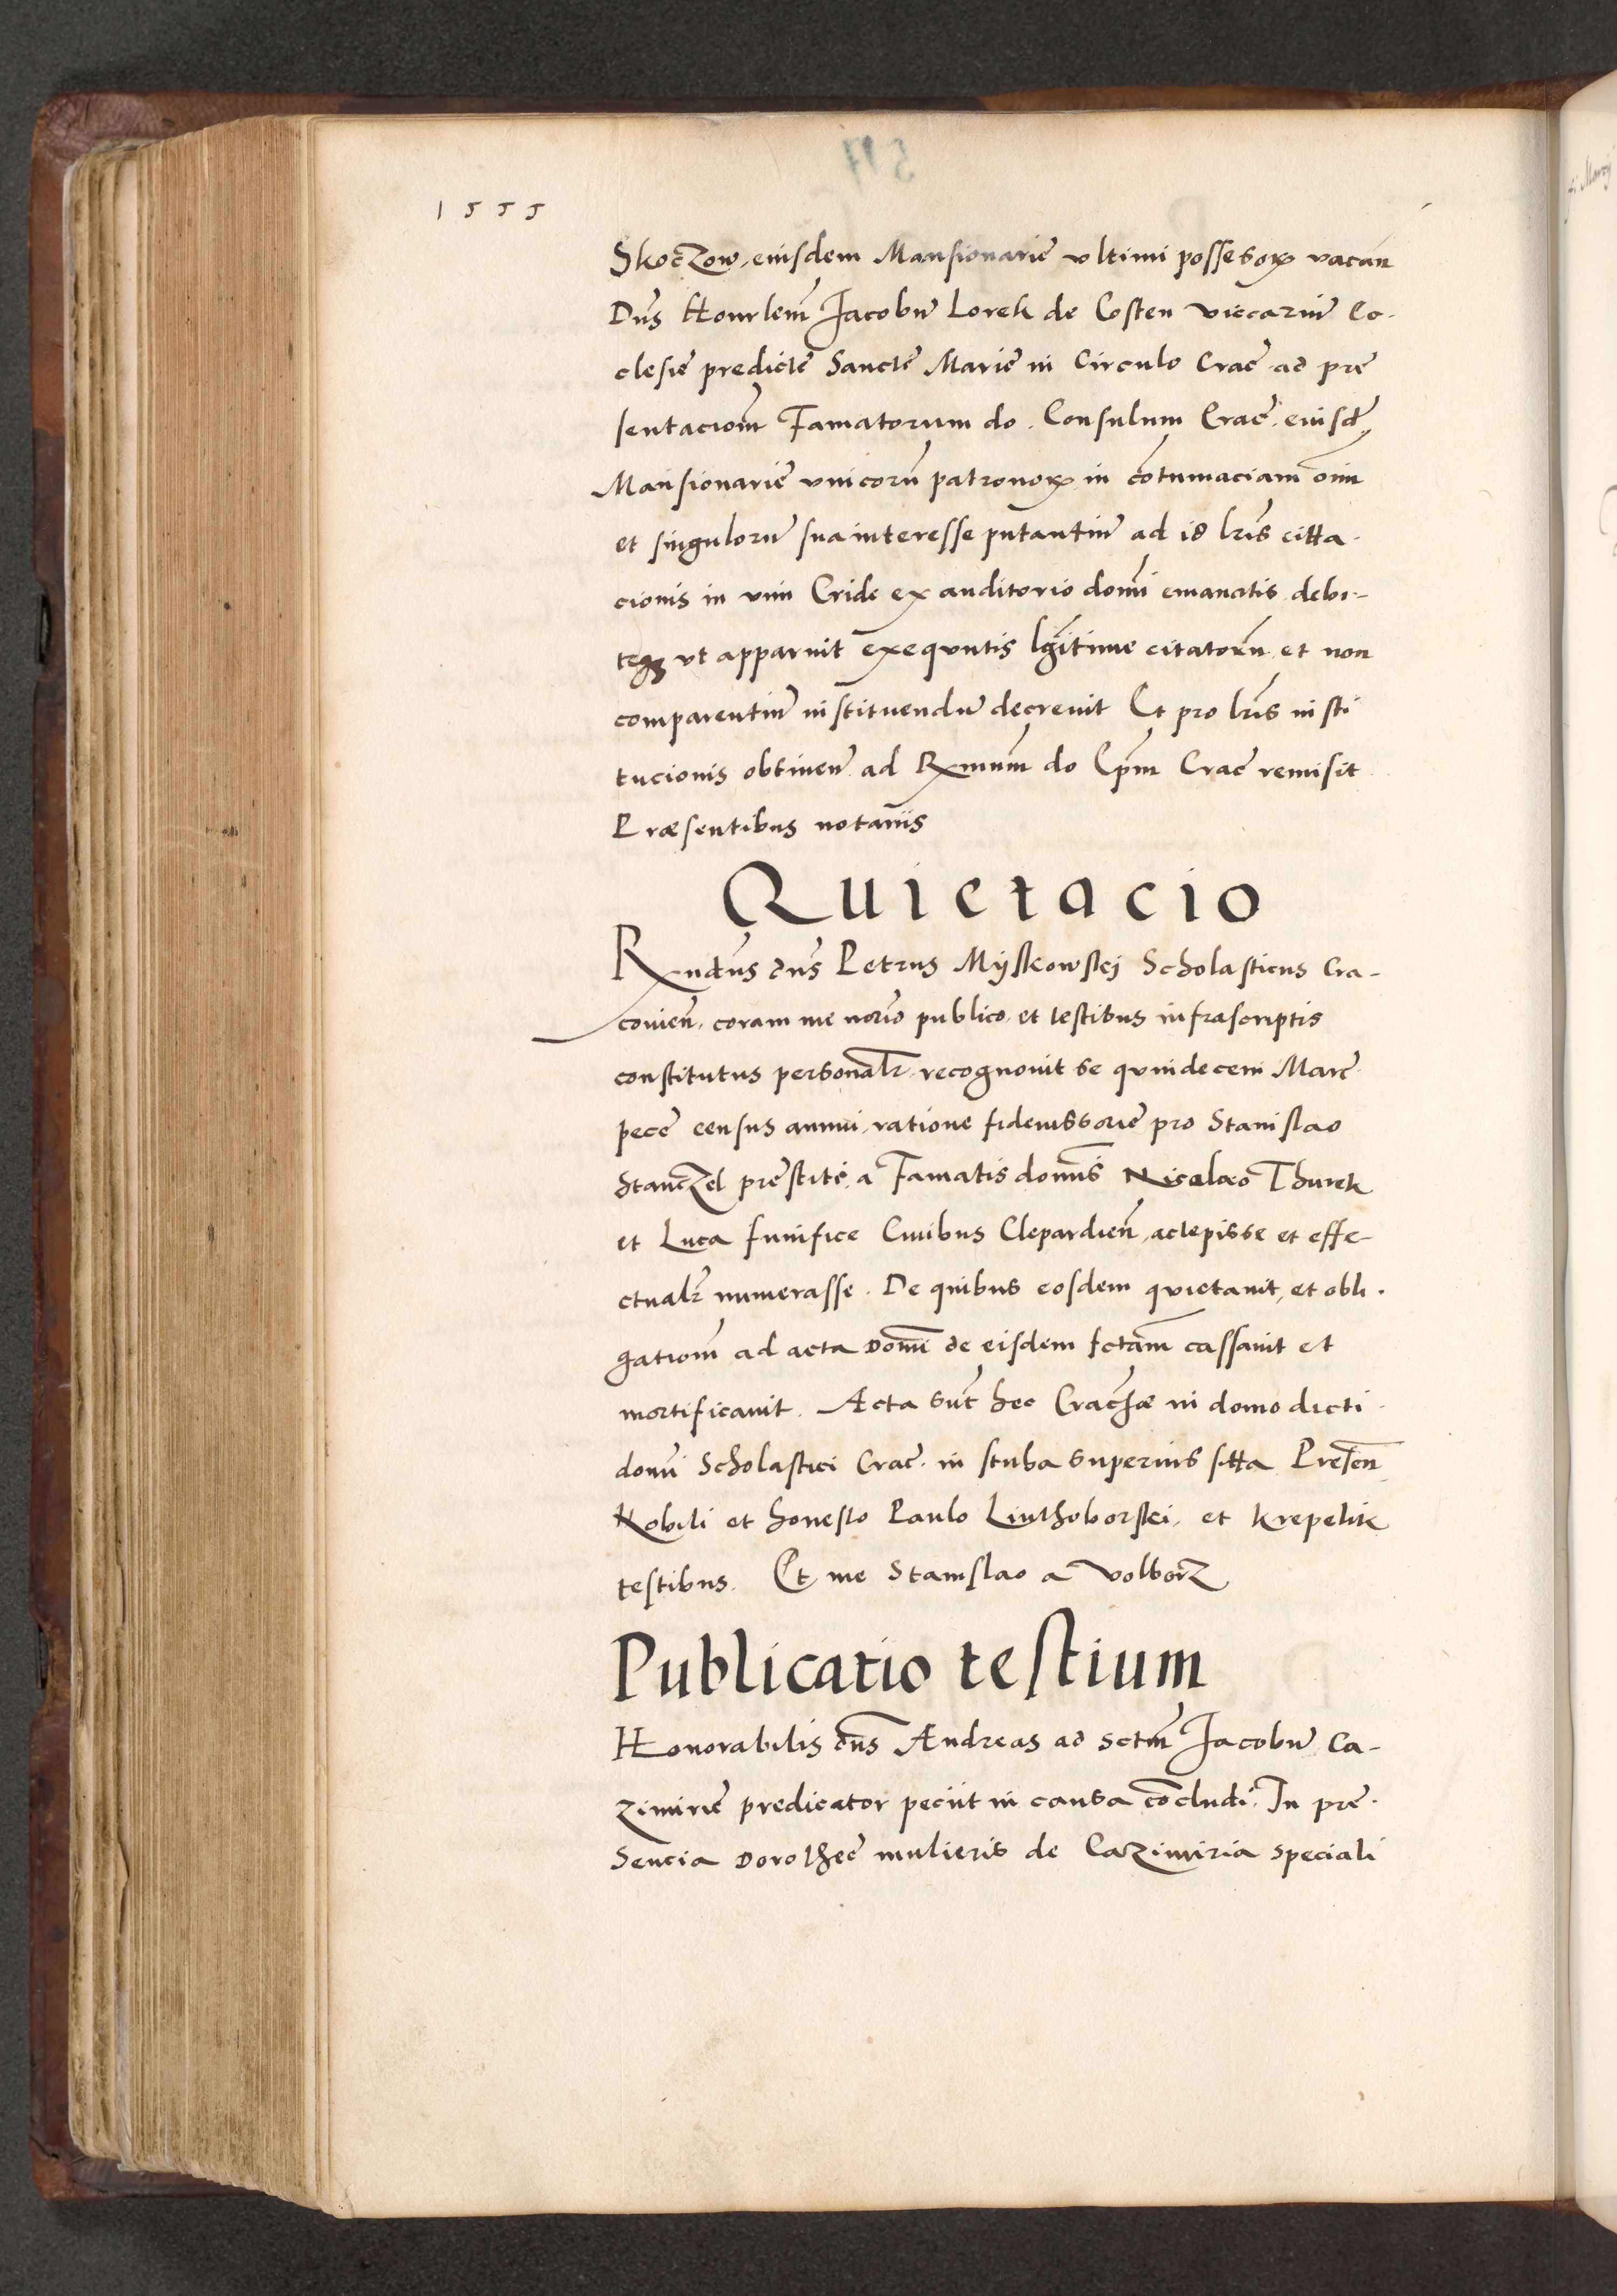 1555
Skoczow, eiusdem Mansionariȩ ultimi possesorꝝ vacan̄
Dn̄s Honrlem̄ Jacobū Lorek de Costen viccariū Ec-
clesiȩ predictȩ Sanctȩ Mariȩ in Circulo Crac̄ ad prȩ
sentaciom̄ Famatorum do. Consulum Crac̄. eiusdē
Mansionariȩ unicorū patronorꝝ in cōtumaciam oīm
et singulorū sua interesse putantiū ad id lr̄is citta-
cionis in vim Cridȩ ex auditorio domī emanatis debi-
teqꝫ ut apparuit exequutis lgītime citatorū et non
comparentiū instituendū decrevit Et pro lr̄is insti
tucionis obtinen̄ ad Rx̄mum do Ep̄m Crac̄ remisit
Præsentibus notariis
Quietacio
Rx̄ndus dn̄s Petrus Myskowskj Scholasticus Cra-
covien̄. coram me norīo publico, et testibus infrascriptis
constitutus personalr̄ recognovit se quindecem Marc̄
pecc̄ census annui, ratione fideiussoriȩ pro Stanislao
Stanczel prȩstitȩ, a Famatis domīs Nicolao Thurek
et Luca funifice Civibus Clepardien̄, accepisse et effe-
ctualr̄ numerasse. De quibus eosdem quietavit, et obli-
gatiom̄ ad acta Domī de eisdem fctam̄ cassavit et
mortificavit. Acta sūt hec Cracꝫiæ in domo dicti
domī Scholastici Crac̄. in stuba superius sitta Presen̄
Nobili et honesto Paulo Linthoborskj, et Krepelik
testibus. Et me Stanislao a Volborz
Publicatio testium
Honorabilis dn̄s Andreas ad Sctm̄ Jacobū Ca-
zimiriȩ predicator peciit in causa cōcludi. In prȩ-
sencia Dorotheȩ mulieris de Cazimiria speciali